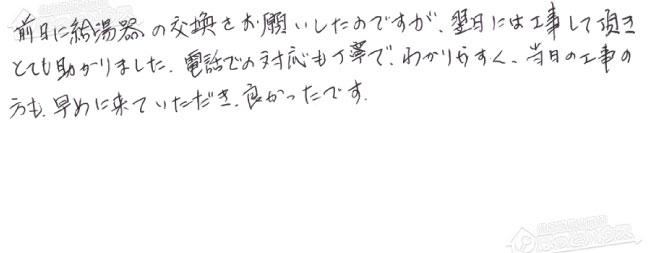 前日に給湯器の交換をお願いしたのですが、翌日には工事して頂き
とても助かりました。電話での対応も丁寧で、わかりやすく、当日の工事の
方も、早めに来ていただき、良かったです。